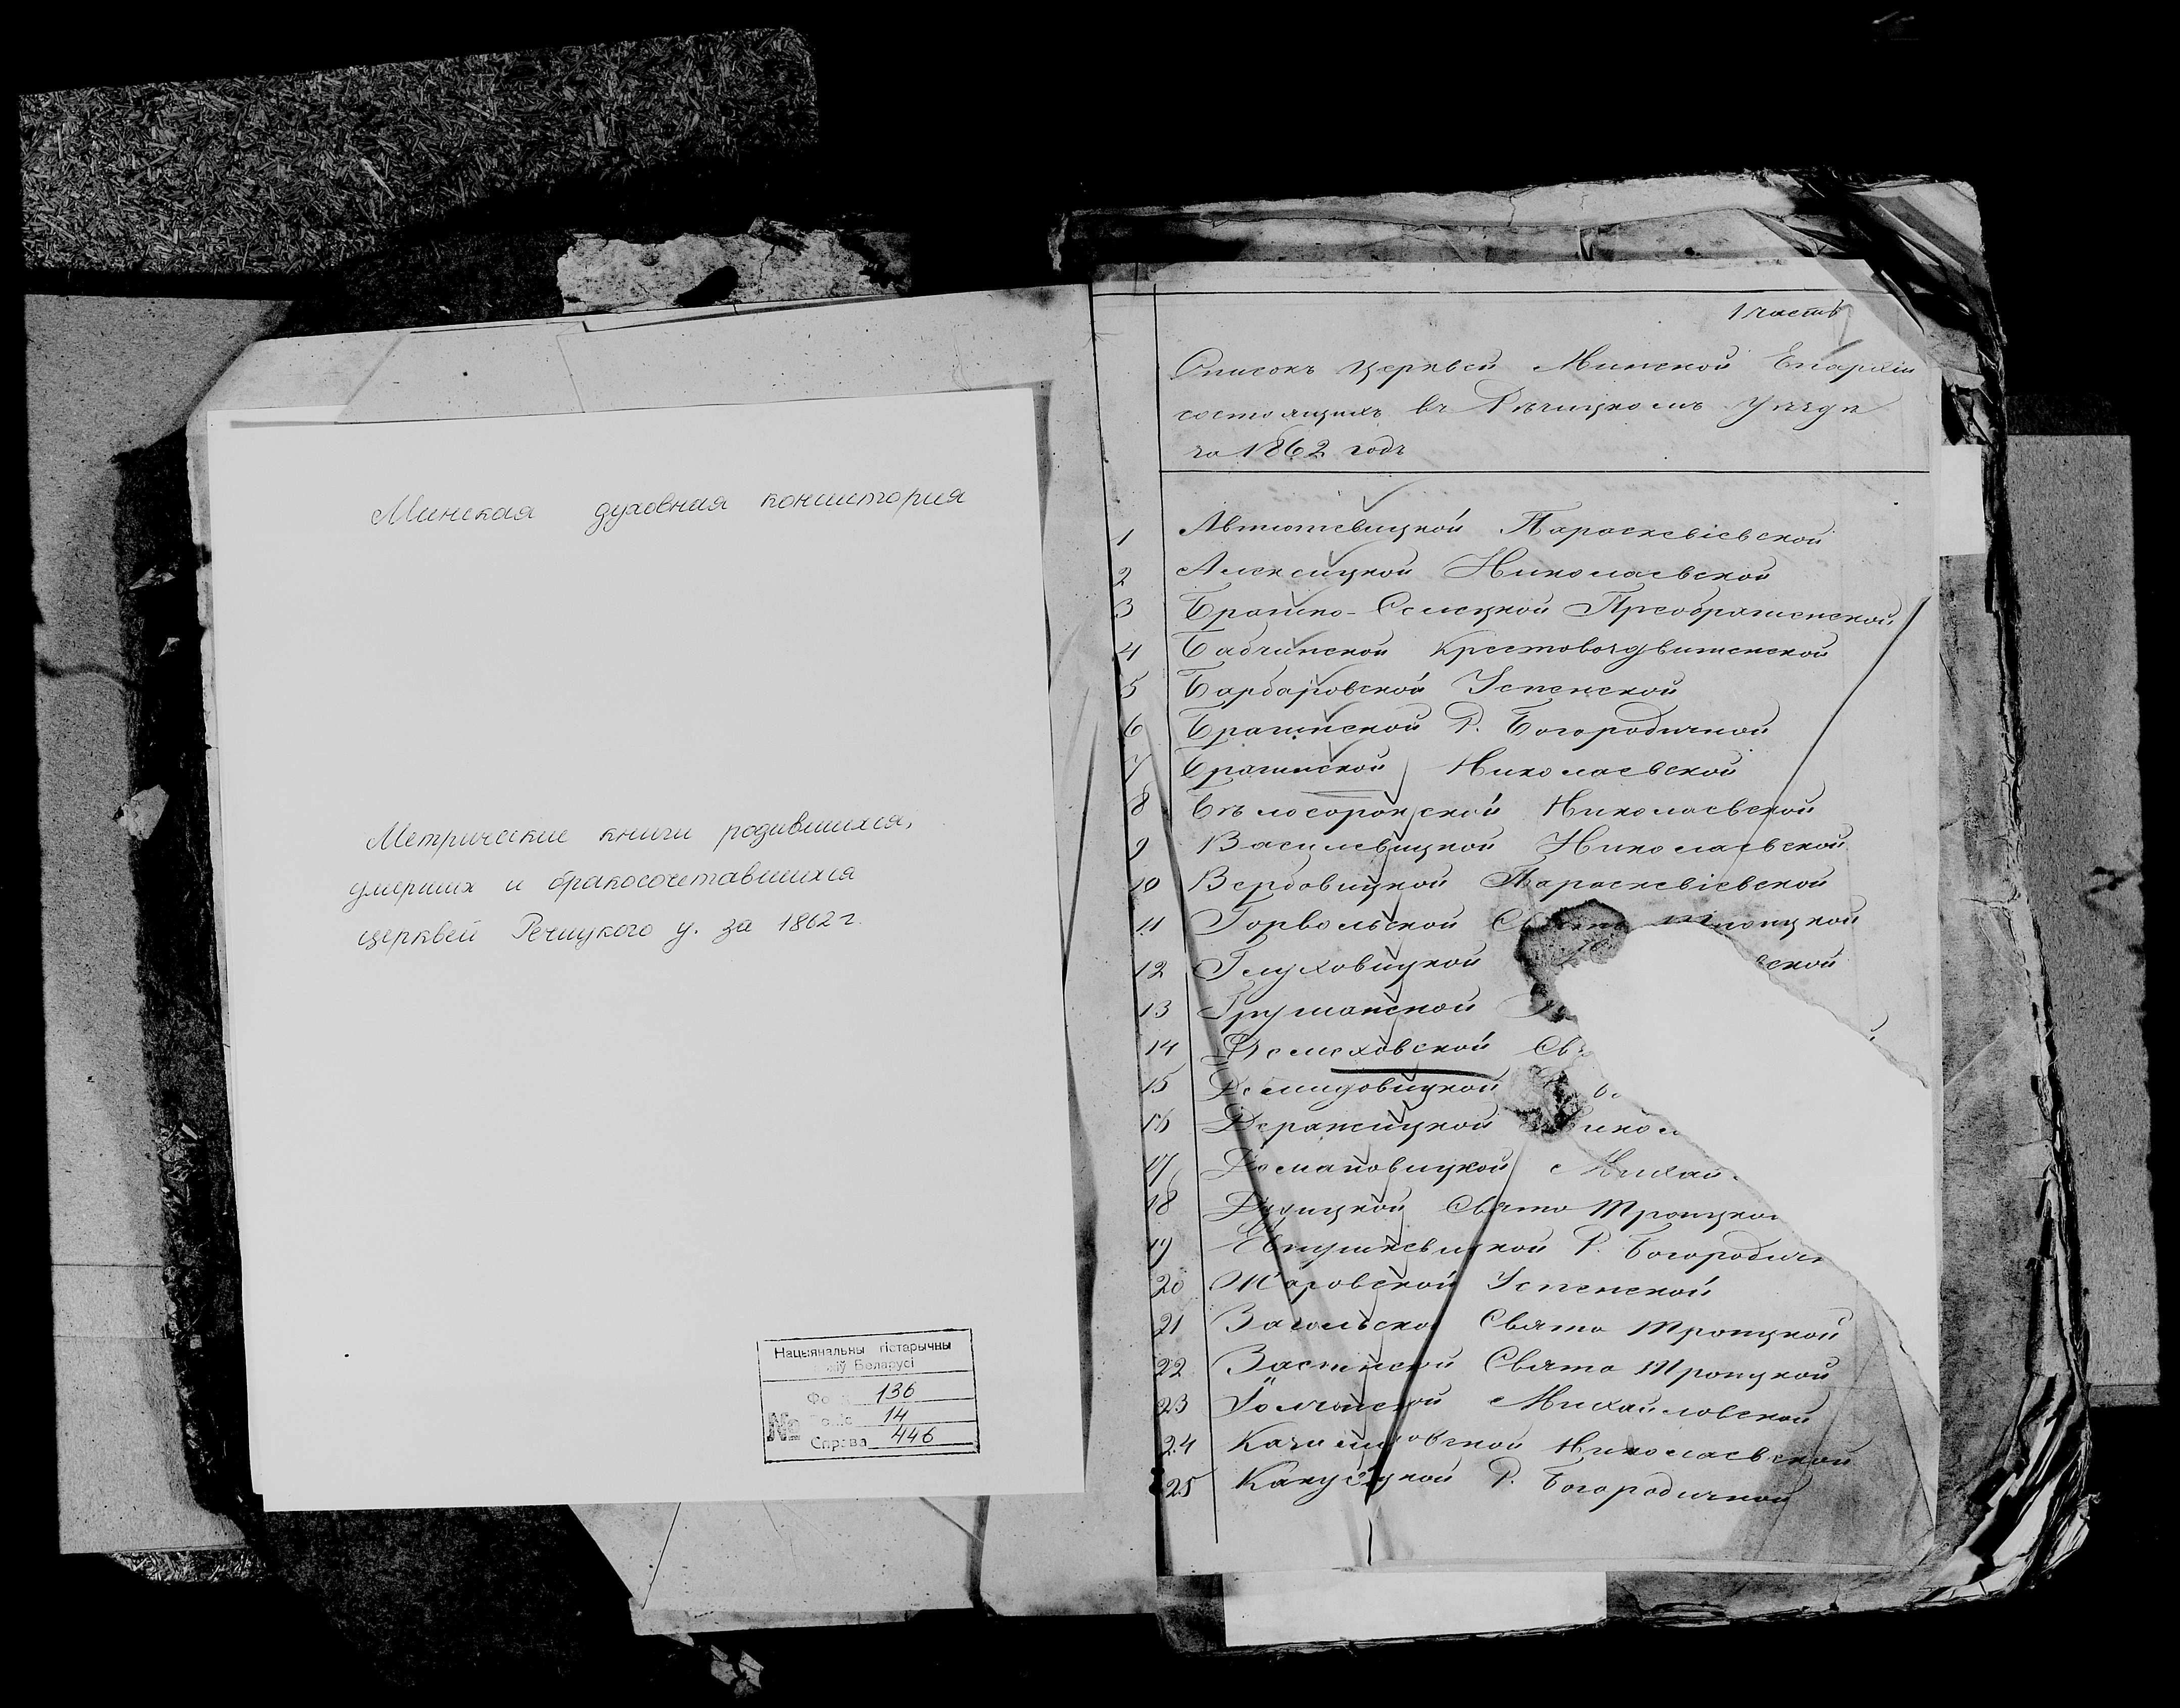 Минская духовная консистория
Метрические книги родившихся,
умерших и бракосочетавшихся
церквей Речицкого у. за 1862 г.
Нацыянальны гістарычны
Беларусі
136
14
№
Справа 446
1 часть
Списокъ церквей Минской Епархіи
состоящихъ въ Рѣчицкомъ Уѣздѣ
за 1862 годъ
1 Автютевицкой Параскевіевской
2 Алексицкой Николаевской
3 Братско-Селецкой Преображенской
4 Бабчинской Крестовоздвиженской
5 Барбаровской Успенской
6 Брагинской Р. Богородичной
7 Брагинской Николаевской
8 Бѣлосорокской Николаевской
9 Василевицкой Николаевской
10 Вербовицкой Параскевіевской
11 Горвольской Троицкой
12 Глуховицкой вской
13
14 Демеховской Св
15 Демидовицкой
16 Деражицкой Никол
17 Домановицкой Михай
18 Дудицкой Свято Троицкой
19 Евтушкевицкой Р. Богородичн
20 Жаровской Успенской
21 Загальской Свято Троицкой
22 Заспенской Свято Троицкой
23 Іолчанской Михайловской
24 Казимировской Николаевской
25 Р. Богородичной